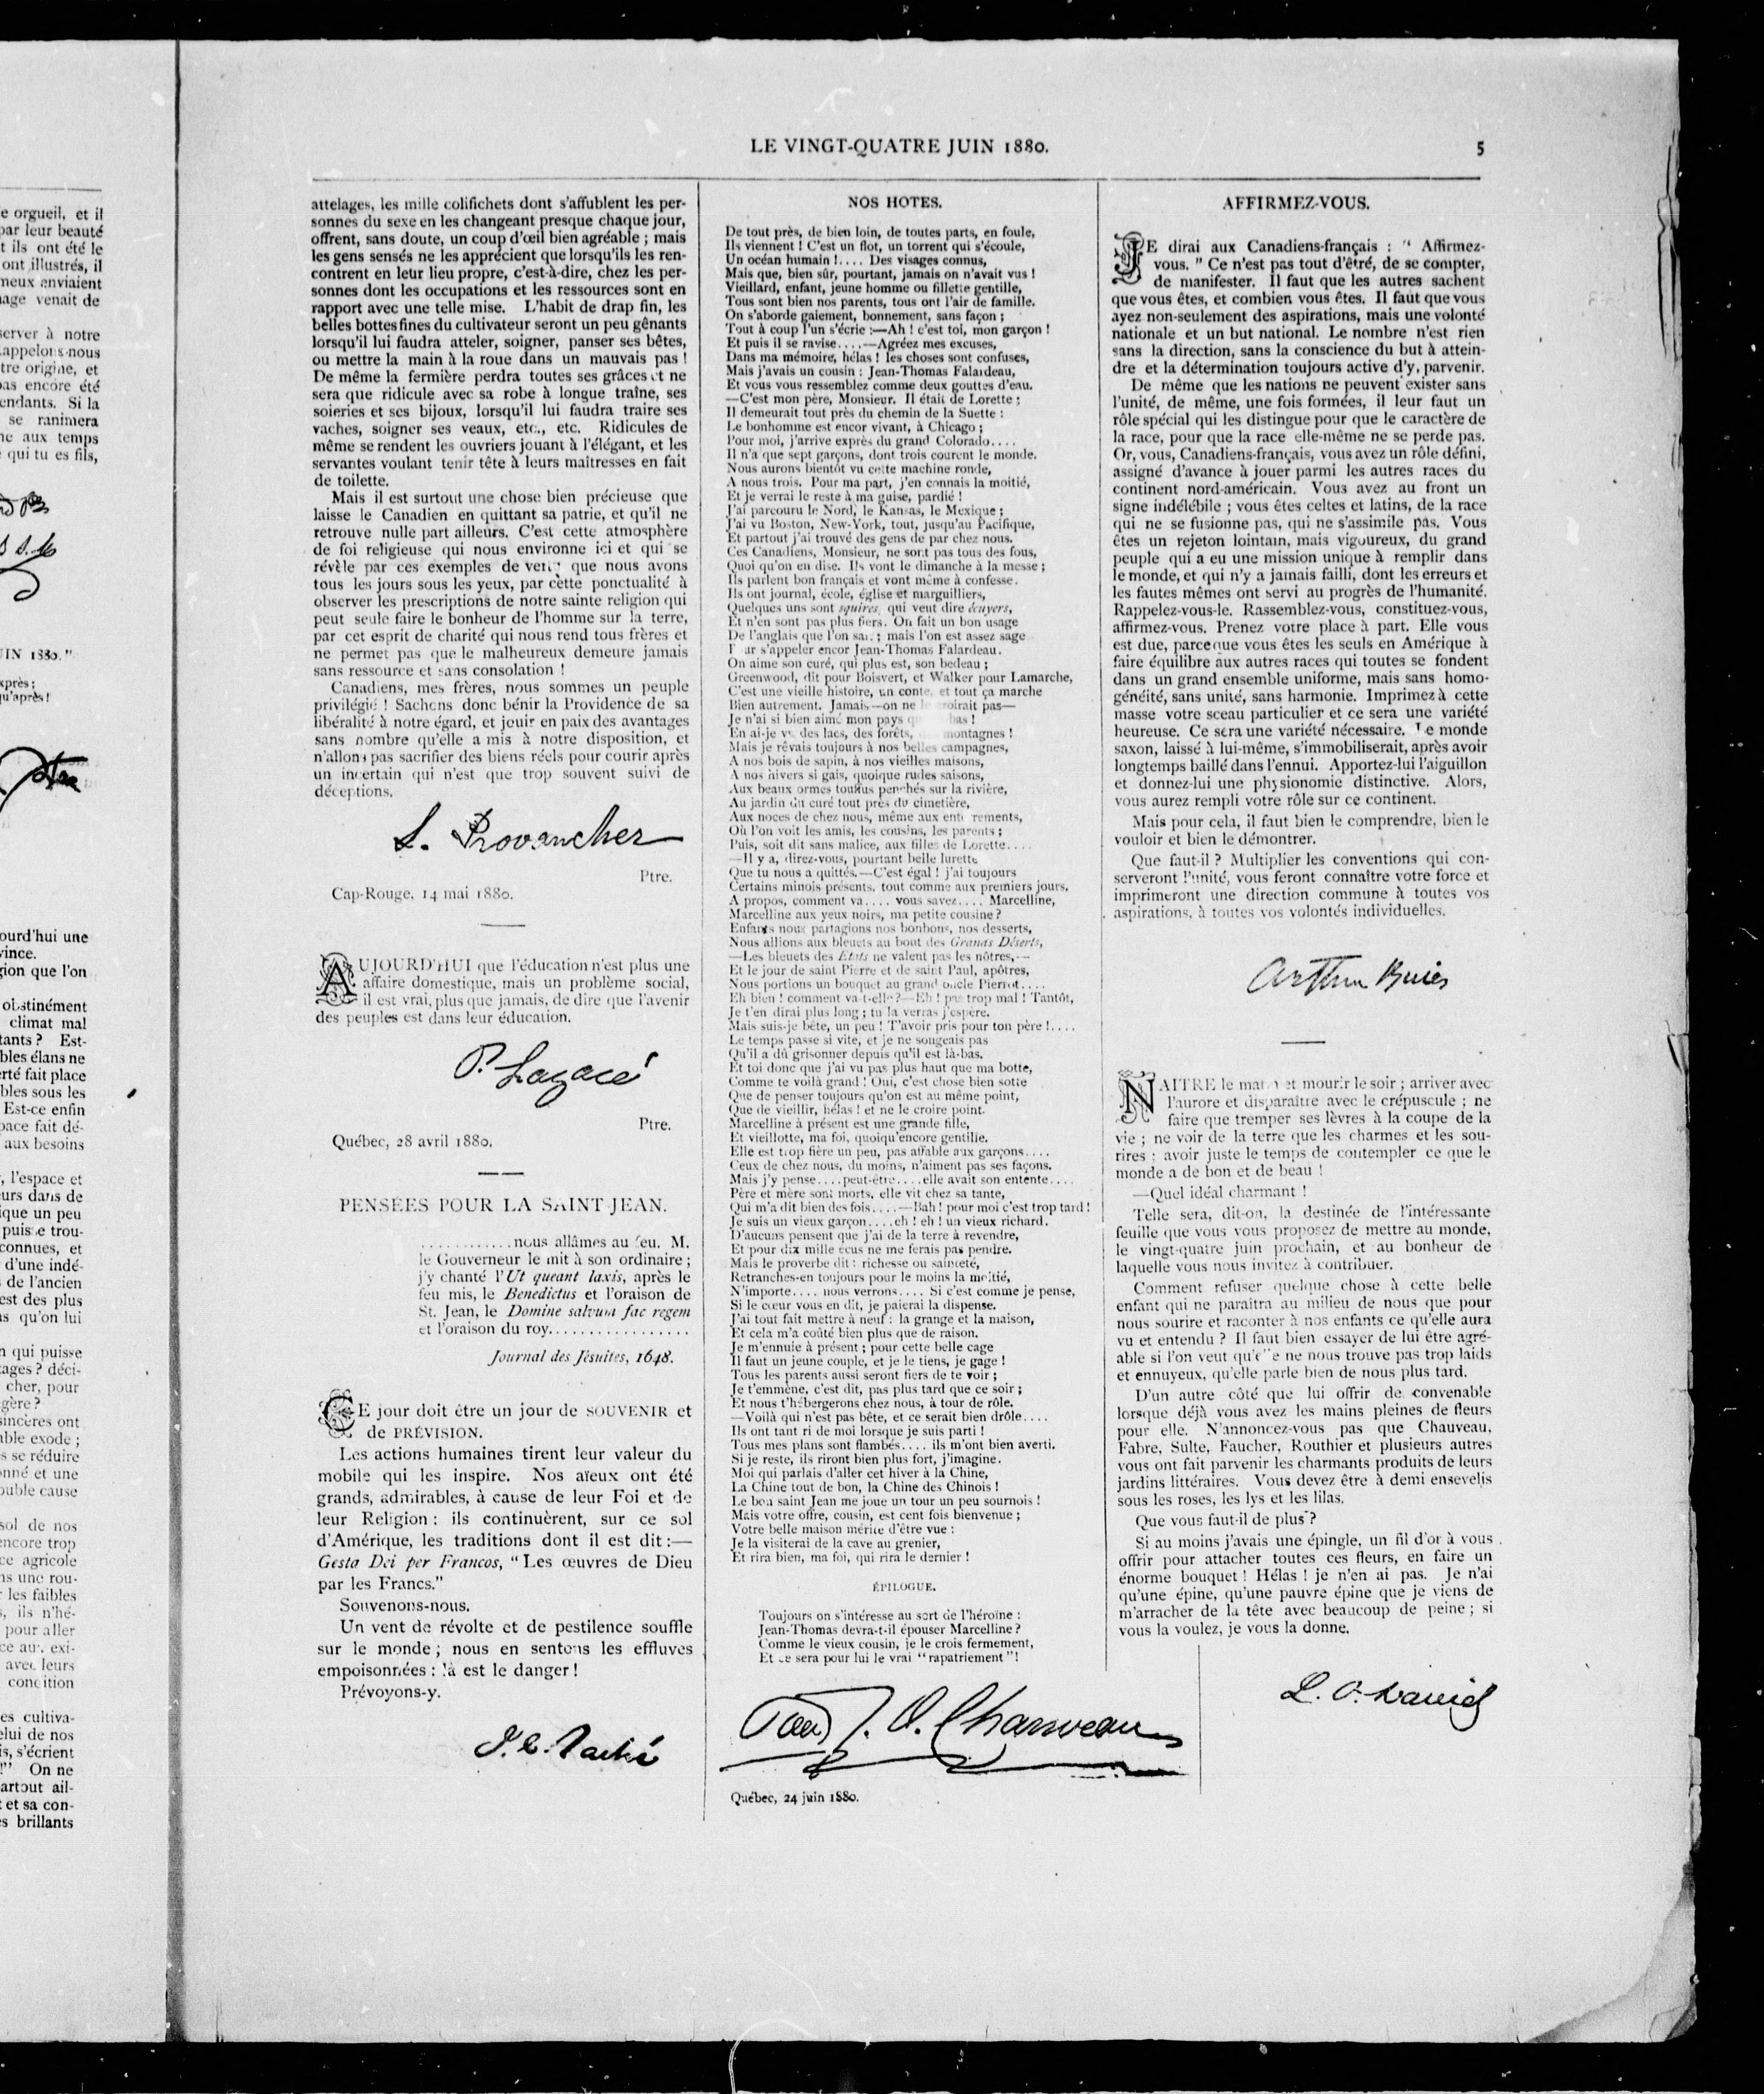 e orgueil, et il
par leur beauté
t ils ont été le
ont illustrés, il
neux enviaient
age venait de
server à notre
tre origine, et
pas encore été
endants. Si la
se ranimera
ne aux temps
qui tu es fils,
UIN 1880."
xprès ;
qu'après !
ourd'hui une
vince.
gion que l'on
obstinément
climat mal
tants ? Est-
bles élans ne
erté fait place
bles sous les
Est-ce enfin
pace fait dé-
aux besoins
, l'espace et
urs dans de
ique un peu
puis e trou-
connues, et
d'une indé-
de l'ancien
est des plus
s qu'on lui
n qui puisse
tages ? déci-
cher, pour
gère ?
sincères ont
able exode ;
s se réduire
onné et une
ouble cause
sol de nos
encore trop
ce agricole
ns une rou-
les faibles
, ils n'hé-
pour aller
ce au . exi-
avec leurs
condition
es cultiva-
elui de nos
is, s'écrient
!" On ne
artout ail-
t et sa con-
s brillants
LE VINGT-QUATRE JUIN 1880.
5
attelages, les mille colifichets dont s'affublent les per-
sonnes du sexe en les changeant presque chaque jour,
offrent, sans doute, un coup d'œil bien agréable ; mais
les gens sensés ne les apprécient que lorsqu'ils les ren-
contrent en leur lieu propre, c'est-à-dire, chez les per-
sonnes dont les occupations et les ressources sont en
rapport avec une telle mise. L'habit de drap fin, les
belles bottes fines du cultivateur seront un peu gênants
lorsqu'il lui faudra atteler, soigner, panser ses bêtes,
ou mettre la main à la roue dans un mauvais pas !
De même la fermière perdra toutes ses grâces et ne
sera que ridicule avec sa robe à longue traîne, ses
soieries et ses bijoux, lorsqu'il lui faudra traire ses
vaches, soigner ses veaux, etc., etc. Ridicules de
même se rendent les ouvriers jouant à l'élégant, et les
servantes voulant tenir tête à leurs maîtresses en fait
de toilette.
Mais il est surtout une chose bien précieuse que
laisse le Canadien en quittant sa patrie, et qu'il ne
retrouve nulle part ailleurs. C'est cette atmosphère
de foi religieuse qui nous environne ici et qui se
révèle par ces exemples de que nous avons
tous les jours sous les yeux, par cette ponctualité à
observer les prescriptions de notre sainte religion qui
peut seule faire le bonheur de l'homme sur la terre,
par cet esprit de charité qui nous rend tous frères et
ne permet pas que le malheureux demeure jamais
sans ressource et sans consolation !
Canadiens, mes frères, nous sommes un peuple
privilégié ! Sachons donc bénir la Providence de sa
libéralité à notre égard, et jouir en paix des avantages
sans nombre qu'elle a mis à notre disposition, et
n'allons pas sacrifier des biens réels pour courir après
un incertain qui n'est que trop souvent suivi de
déceptions.
L. Provancher
Ptre.
Cap-Rouge, 14 mai 1880.
AUJOURD'HUI que l'éducation n'est plus une
affaire domestique, mais un problème social,
il est vrai, plus que jamais, de dire que l'avenir
des peuples est dans leur éducation.
P. Lagacé
Ptre.
Québec, 28 avril 1880.
PENSÉES POUR LA SAINT-JEAN.
............nous allâmes au feu. M.
le Gouverneur le mit à son ordinaire ;
j'y chanté l'Ut queant laxis, après le
feu mis, le Benedictus et l'oraison de
St. Jean, le Domine salvum fac regem
et l'oraison du roy.................
Journal des Jésuites, 1648.
CE jour doit être un jour de SOUVENIR et
de PRÉVISION.
Les actions humaines tirent leur valeur du
mobile qui les inspire. Nos aïeux ont été
grands, admirables, à cause de leur Foi et de
leur Religion : ils continuèrent, sur ce sol
d'Amérique, les traditions dont il est dit :—
Gesta Dei per Francos, "Les œuvres de Dieu
par les Francs."
Souvenons-nous.
Un vent de révolte et de pestilence souffle
sur le monde ; nous en sentons les effluves
empoisonnées : là est le danger !
Prévoyons-y.
J. C. Taché
NOS HOTES.
De tout près, de bien loin, de toutes parts, en foule,
Ils viennent ! C'est un flot, un torrent qui s'écoule,
Un océan humain !.... Des visages connus,
Mais que, bien sûr, pourtant, jamais on n'avait vus !
Vieillard, enfant, jeune homme ou fillette gentille,
Tous sont bien nos parents, tous ont l'air de famille.
On s'aborde gaiement, bonnement, sans façon ;
Tout à coup l'un s'écrie :—Ah ! c'est toi, mon garçon !
Et puis il se ravise....—Agréez mes excuses,
Dans ma mémoire, hélas ! les choses sont confuses,
Mais j'avais un cousin : Jean-Thomas Falardeau,
Et vous vous ressemblez comme deux gouttes d'eau.
—C'est mon père, Monsieur. Il était de Lorette ;
Il demeurait tout près du chemin de la Suette :
Le bonhomme est encor vivant, à Chicago ;
Pour moi, j'arrive exprès du grand Colorado....
Il n'a que sept garçons, dont trois courent le monde.
Nous aurons bientôt vu cette machine ronde,
A nous trois. Pour ma part, j'en connais la moitié,
Et je verrai le reste à ma guise, pardié !
J'ai parcouru le Nord, le Kansas, le Mexique ;
J'ai vu Boston, New-York, tout, jusqu'au Pacifique,
Et partout j'ai trouvé des gens de par chez nous.
Ces Canadiens, Monsieur, ne sont pas tous des fous,
Quoi qu'on en dise. Ils vont le dimanche à la messe ;
Ils parlent bon français et vont même à confesse.
Ils ont journal, école, église et marguilliers,
Quelques uns sont squires, qui veut dire écuyers,
Et n'en sont pas plus fiers. On fait un bon usage
De l'anglais que l'on sait ; mais l'on est assez sage
s'appeler encor Jean-Thomas Falardeau.
On aime son curé, qui plus est, son bedeau ;
Greenwood, dit pour Boisvert, et Walker pour Lamarche,
C'est une vieille histoire, un conte, et tout ça marche
Bien autrement. Jamais—on ne le croirait pas—
Je n'ai si bien aimé mon pays bas !
En ai-je vu des lacs, des forêts, montagnes !
Mais je rêvais toujours à nos belles campagnes,
A nos bois de sapin, à nos vieilles maisons,
A nos hivers si gais, quoique rudes saisons,
Aux beaux ormes touffus penchés sur la rivière,
Au jardin du curé tout près du cimetière,
Aux noces de chez nous, même aux enterrements,
Où l'on voit les amis, les cousins, les parents ;
Puis, soit dit sans malice, aux filles de Lorette....
—Il y a, direz-vous, pourtant belle lurette
Que tu nous a quittés.—C'est égal ! j'ai toujours
Certains minois présents, tout comme aux premiers jours.
A propos, comment va.... vous savez.... Marcelline,
Marcelline aux yeux noirs, ma petite cousine ?
Enfants nous partagions nos bonbons, nos desserts,
Nous allions aux bleuets au bout des Grands Déserts,
—Les bleuets des États ne valent pas les nôtres,—
Et le jour de saint Pierre et de saint Paul, apôtres,
Nous portions un bouquet au grand oncle Pierrot....
Eh bien ! comment va-t-elle ?—Eh ! pas trop mal ! Tantôt,
Je t'en dirai plus long ; tu la verras j'espère.
Mais suis-je bête, un peu ! T'avoir pris pour ton père !....
Le temps passe si vite, et je ne songeais pas
Qu'il a dû grisonner depuis qu'il est là-bas.
Et toi donc que j'ai vu pas plus haut que ma botte,
Comme te voilà grand ! Oui, c'est chose bien sotte
Que de penser toujours qu'on est au même point,
Que de vieillir, hélas ! et ne le croire point.
Marcelline à présent est une grande fille,
Et vieillotte, ma foi, quoiqu'encore gentille.
Elle est trop fière un peu, pas affable aux garçons....
Ceux de chez nous, du moins, n'aiment pas ses façons.
Mais j'y pense....peut-être....elle avait son entente....
Père et mère sont morts, elle vit chez sa tante,
Qui m'a dit bien des fois....—Bah ! pour moi c'est trop tard !
Je suis un vieux garçon....eh ! eh ! un vieux richard.
D'aucuns pensent que j'ai de la terre à revendre,
Et pour dix mille écus ne me ferais pas pendre.
Mais le proverbe dit : richesse ou sainteté,
Retranches-en toujours pour le moins la moitié,
N'importe.... nous verrons.... Si c'est comme je pense,
Si le cœur vous en dit, je paierai la dispense.
J'ai tout fait mettre à neuf : la grange et la maison,
Et cela m'a coûté bien plus que de raison.
Je m'ennuie à présent ; pour cette belle cage
Il faut un jeune couple, et je le tiens, je gage !
Tous les parents aussi seront fiers de te voir ;
Je t'emmène, c'est dit, pas plus tard que ce soir ;
Et nous t'hébergerons chez nous, à tour de rôle.
—Voilà qui n'est pas bête, et ce serait bien drôle....
Ils ont tant ri de moi lorsque je suis parti !
Tous mes plans sont flambés.... ils m'ont bien averti.
Si je reste, ils riront bien plus fort, j'imagine.
Moi qui parlais d'aller cet hiver à la Chine,
La Chine tout de bon, la Chine des Chinois !
Le bon saint Jean me joue un tour un peu sournois !
Mais votre offre, cousin, est cent fois bienvenue ;
Votre belle maison mérite d'être vue :
Je la visiterai de la cave au grenier,
Et rira bien, ma foi, qui rira le dernier !
ÉPILOGUE.
Toujours on s'intéresse au sort de l'héroïne :
Jean-Thomas devra-t-il épouser Marcelline ?
Comme le vieux cousin, je le crois fermement,
Et ce sera pour lui le vrai "rapatriement" !
J. O. Chauveau
Québec, 24 juin 1880.
AFFIRMEZ-VOUS.
JE dirai aux Canadiens-français : " Affirmez-
vous. " Ce n'est pas tout d'être, de se compter,
de manifester. Il faut que les autres sachent
que vous êtes, et combien vous êtes. Il faut que vous
ayez non-seulement des aspirations, mais une volonté
nationale et un but national. Le nombre n'est rien
sans la direction, sans la conscience du but à attein-
dre et la détermination toujours active d'y parvenir.
De même que les nations ne peuvent exister sans
l'unité, de même, une fois formées, il leur faut un
rôle spécial qui les distingue pour que le caractère de
la race, pour que la race elle-même ne se perde pas.
Or, vous, Canadiens-français, vous avez un rôle défini,
assigné d'avance à jouer parmi les autres races du
continent nord-américain. Vous avez au front un
signe indélébile ; vous êtes celtes et latins, de la race
qui ne se fusionne pas, qui ne s'assimile pas. Vous
êtes un rejeton lointain, mais vigoureux, du grand
peuple qui a eu une mission unique à remplir dans
le monde, et qui n'y a jamais failli, dont les erreurs et
les fautes mêmes ont servi au progrès de l'humanité.
Rappelez-vous-le. Rassemblez-vous, constituez-vous,
affirmez-vous. Prenez votre place à part. Elle vous
est due, parceque vous êtes les seuls en Amérique à
faire équilibre aux autres races qui toutes se fondent
dans un grand ensemble uniforme, mais sans homo-
généité, sans unité, sans harmonie. Imprimez à cette
masse votre sceau particulier et ce sera une variété
heureuse. Ce sera une variété nécessaire. Le monde
saxon, laissé à lui-même, s'immobiliserait, après avoir
longtemps baillé dans l'ennui. Apportez-lui l'aiguillon
et donnez-lui une physionomie distinctive. Alors,
vous aurez rempli votre rôle sur ce continent.
Mais pour cela, il faut bien le comprendre, bien le
vouloir et bien le démontrer.
Que faut-il ? Multiplier les conventions qui con-
serveront l'unité, vous feront connaître votre force et
imprimeront une direction commune à toutes vos
aspirations, à toutes vos volontés individuelles.
Arthur Buies
NAITRE le matin et mourir le soir ; arriver avec
l'aurore et disparaître avec le crépuscule ; ne
faire que tremper ses lèvres à la coupe de la
vie ; ne voir de la terre que les charmes et les sou-
rires ; avoir juste le temps de contempler ce que le
monde a de bon et de beau !
—Quel idéal charmant !
Telle sera, dit-on, la destinée de l'intéressante
feuille que vous vous proposez de mettre au monde,
le vingt-quatre juin prochain, et au bonheur de
laquelle vous nous invitez à contribuer.
Comment refuser quelque chose à cette belle
enfant qui ne paraîtra au milieu de nous que pour
nous sourire et raconter à nos enfants ce qu'elle aura
vu et entendu ? Il faut bien essayer de lui être agré-
able si l'on veut qu'elle ne nous trouve pas trop laids
et ennuyeux, qu'elle parle bien de nous plus tard.
D'un autre côté que lui offrir de convenable
lorsque déjà vous avez les mains pleines de fleurs
pour elle. N'annoncez-vous pas que Chauveau,
Fabre, Sulte, Faucher, Routhier et plusieurs autres
vous ont fait parvenir les charmants produits de leurs
jardins littéraires. Vous devez être à demi ensevelis
sous les roses, les lys et les lilas.
Que vous faut-il de plus ?
Si au moins j'avais une épingle, un fil d'or à vous
offrir pour attacher toutes ces fleurs, en faire un
énorme bouquet ! Hélas ! je n'en ai pas. Je n'ai
qu'une épine, qu'une pauvre épine que je viens de
m'arracher de la tête avec beaucoup de peine ; si
vous la voulez, je vous la donne.
L. O. David